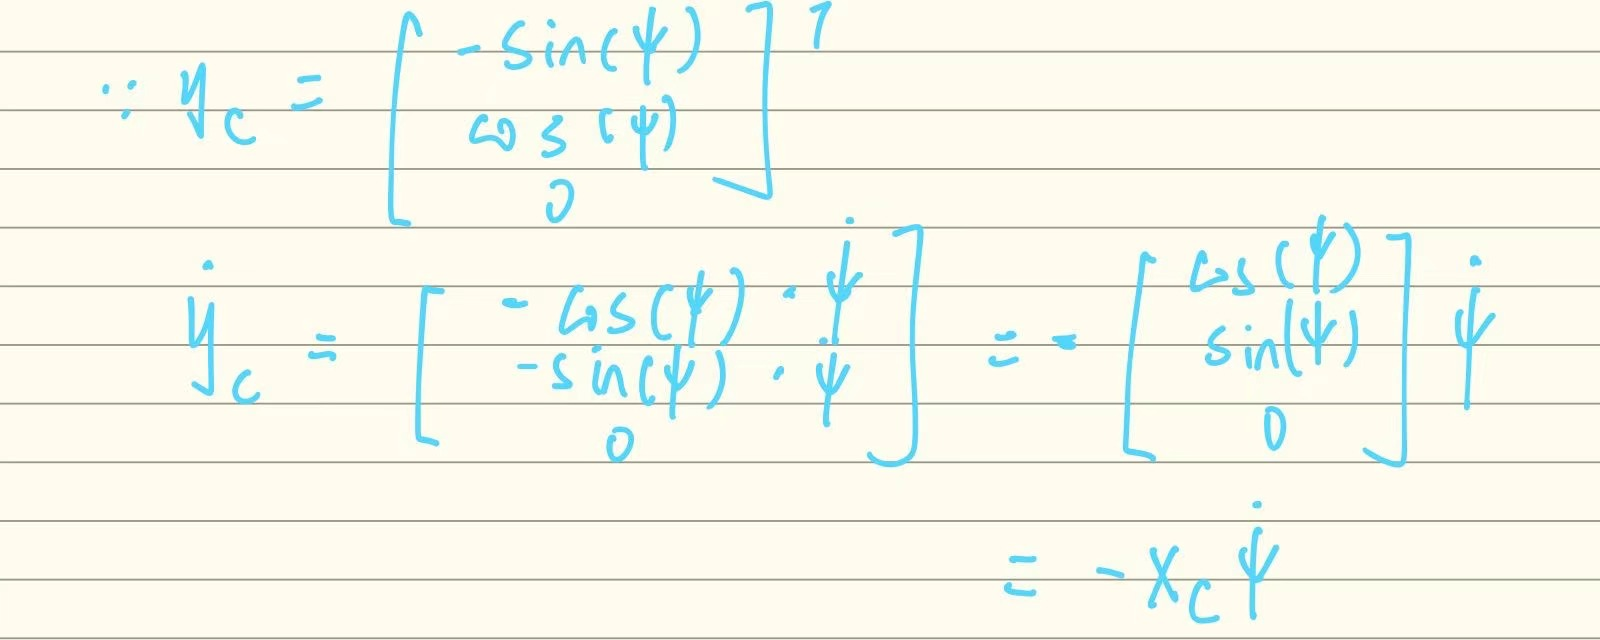 ∵ y_c = [ -sin(ψ) cos(ψ) 0 ]ᵀ
ẏ_c = [ -cos(ψ)·ψ̇ -sin(ψ)·ψ̇ 0 ] = - [ cos(ψ) sin(ψ) 0 ] ψ̇
= -x_c ψ̇